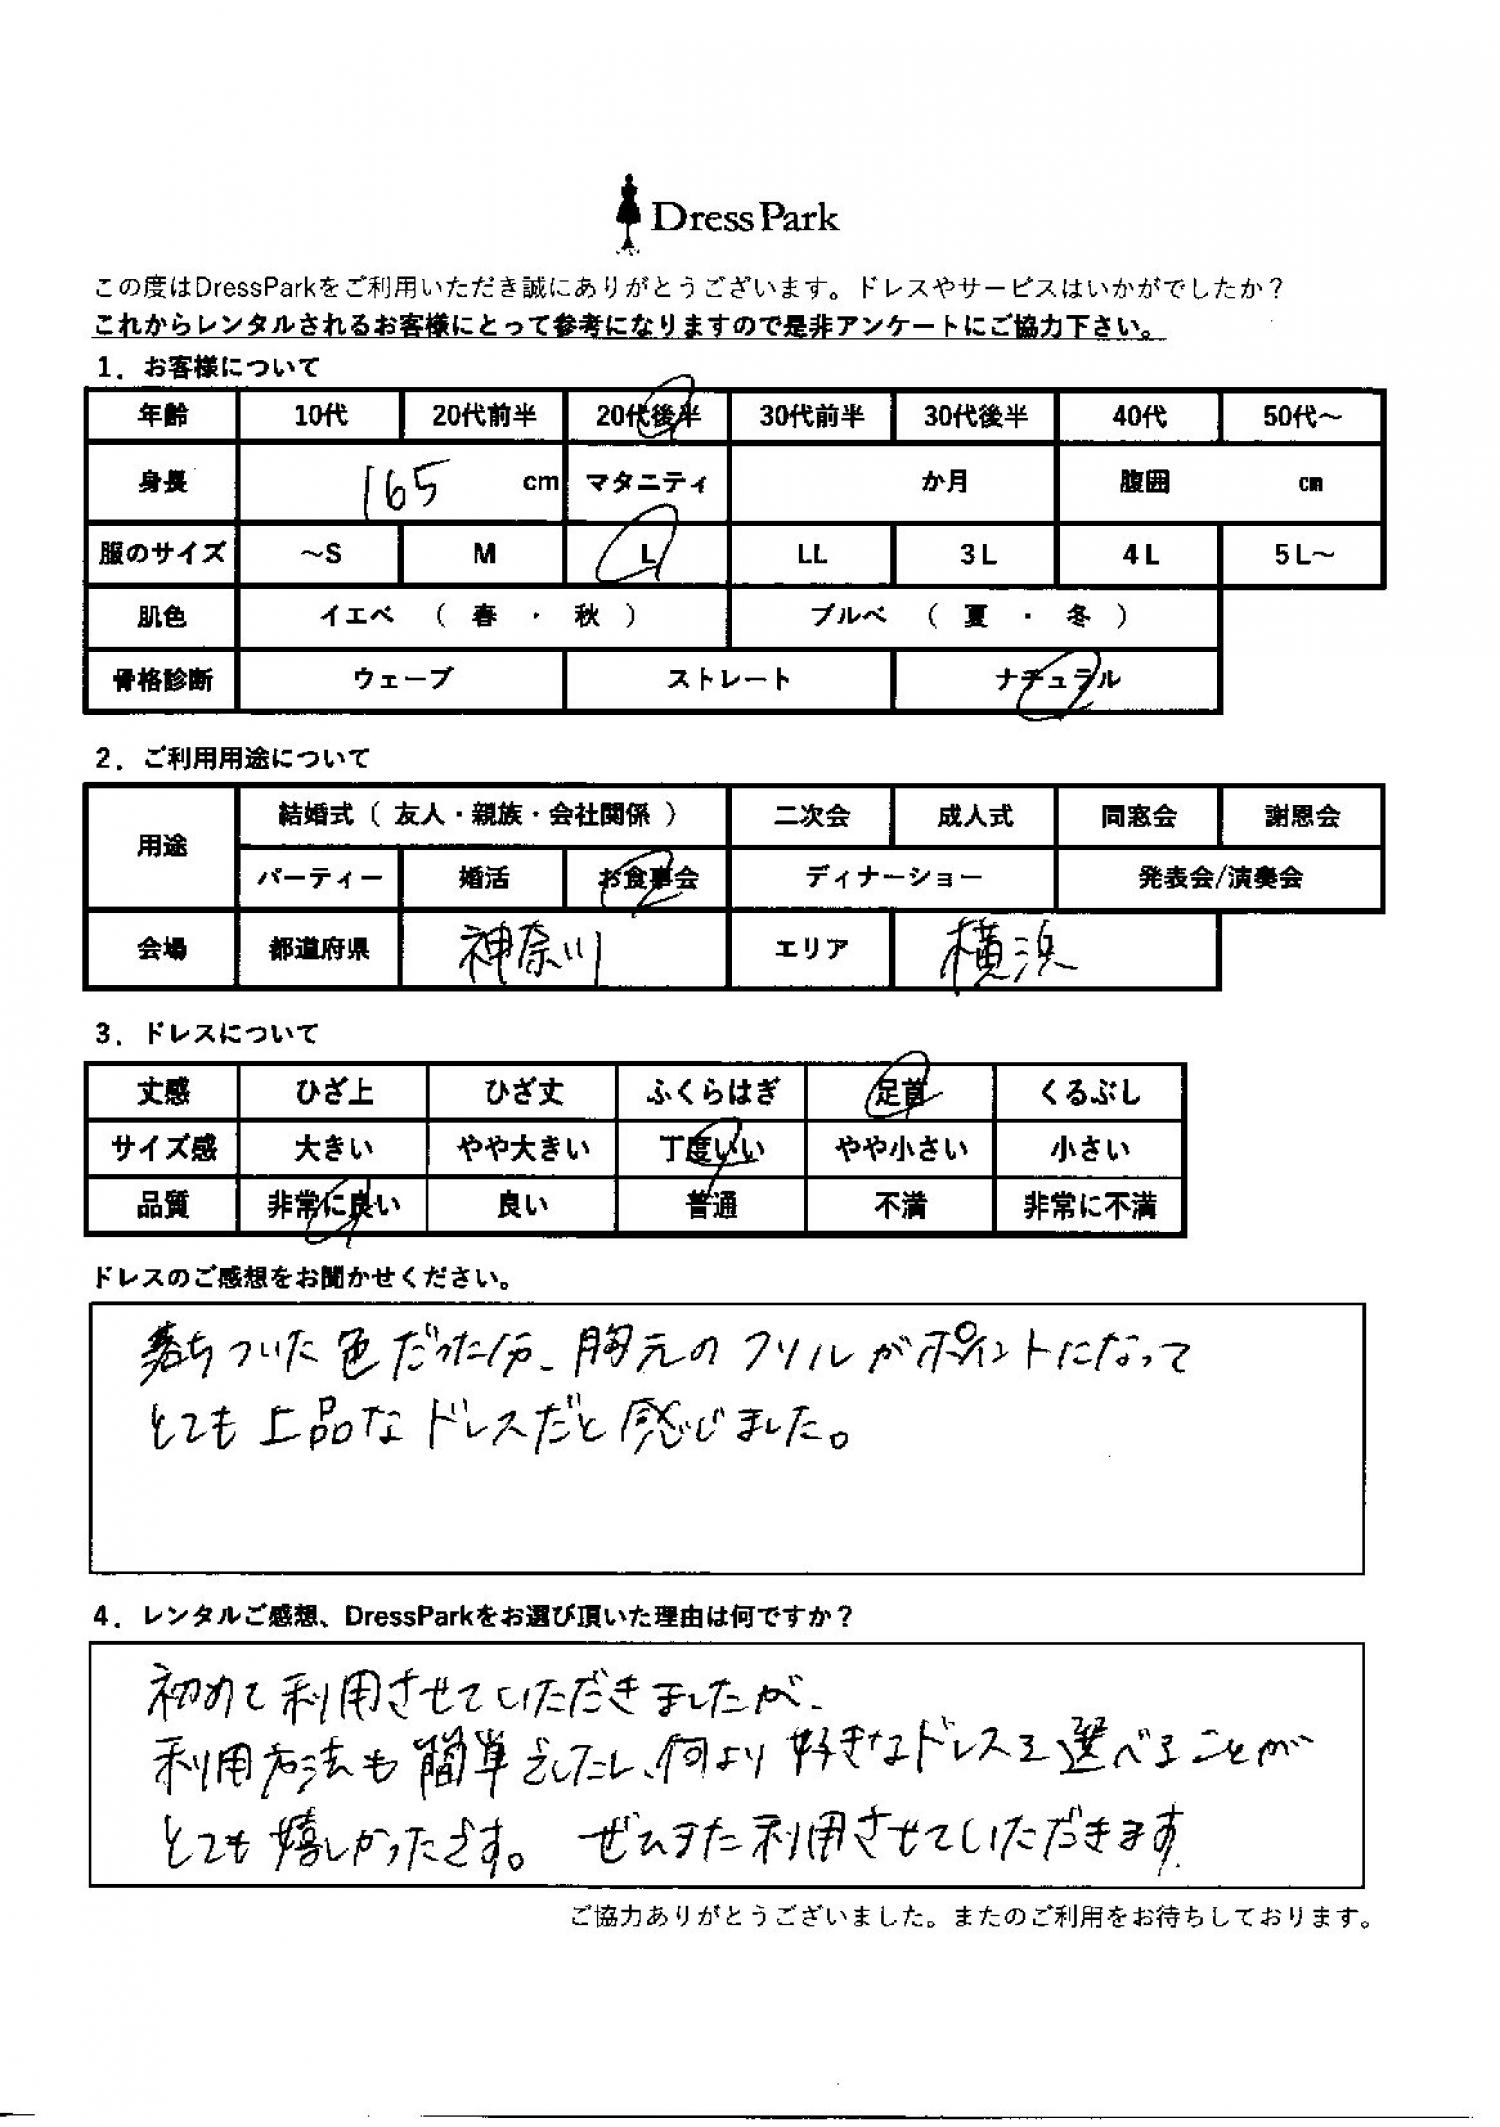 DressPark
この度はDressParkをご利用いただき誠にありがとうございます。ドレスやサービスはいかがでしたか？
これからレンタルされるお客様にとって参考になりますので是非アンケートにご協力下さい。
1．お客様について
年齢 10代 20代前半 20代後半 30代前半 30代後半 40代 50代～
身長 165 cm マタニティ か月 腹囲 cm
服のサイズ ～S M L LL 3L 4L 5L～
肌色 イエベ （ 春 ・ 秋 ） ブルベ （ 夏 ・ 冬 ）
骨格診断 ウェーブ ストレート ナチュラル
2．ご利用用途について
用途 結婚式（ 友人・親族・会社関係 ） 二次会 成人式 同窓会 謝恩会
パーティー 婚活 お食事会 ディナーショー 発表会/演奏会
会場 都道府県 神奈川 エリア 横浜
3．ドレスについて
丈感 ひざ上 ひざ丈 ふくらはぎ 足首 くるぶし
サイズ感 大きい やや大きい 丁度いい やや小さい 小さい
品質 非常に良い 良い 普通 不満 非常に不満
ドレスのご感想をお聞かせください。
落ちついた色だった分、胸元のフリルがポイントになって
とても上品なドレスだと感じました。
4．レンタルご感想、DressParkをお選び頂いた理由は何ですか？
初めて利用させていただきましたが、
利用方法も簡単でしたし、何より好きなドレスを選べることが
とても嬉しかったです。 ぜひまた利用させていただきます
ご協力ありがとうございました。またのご利用をお待ちしております。